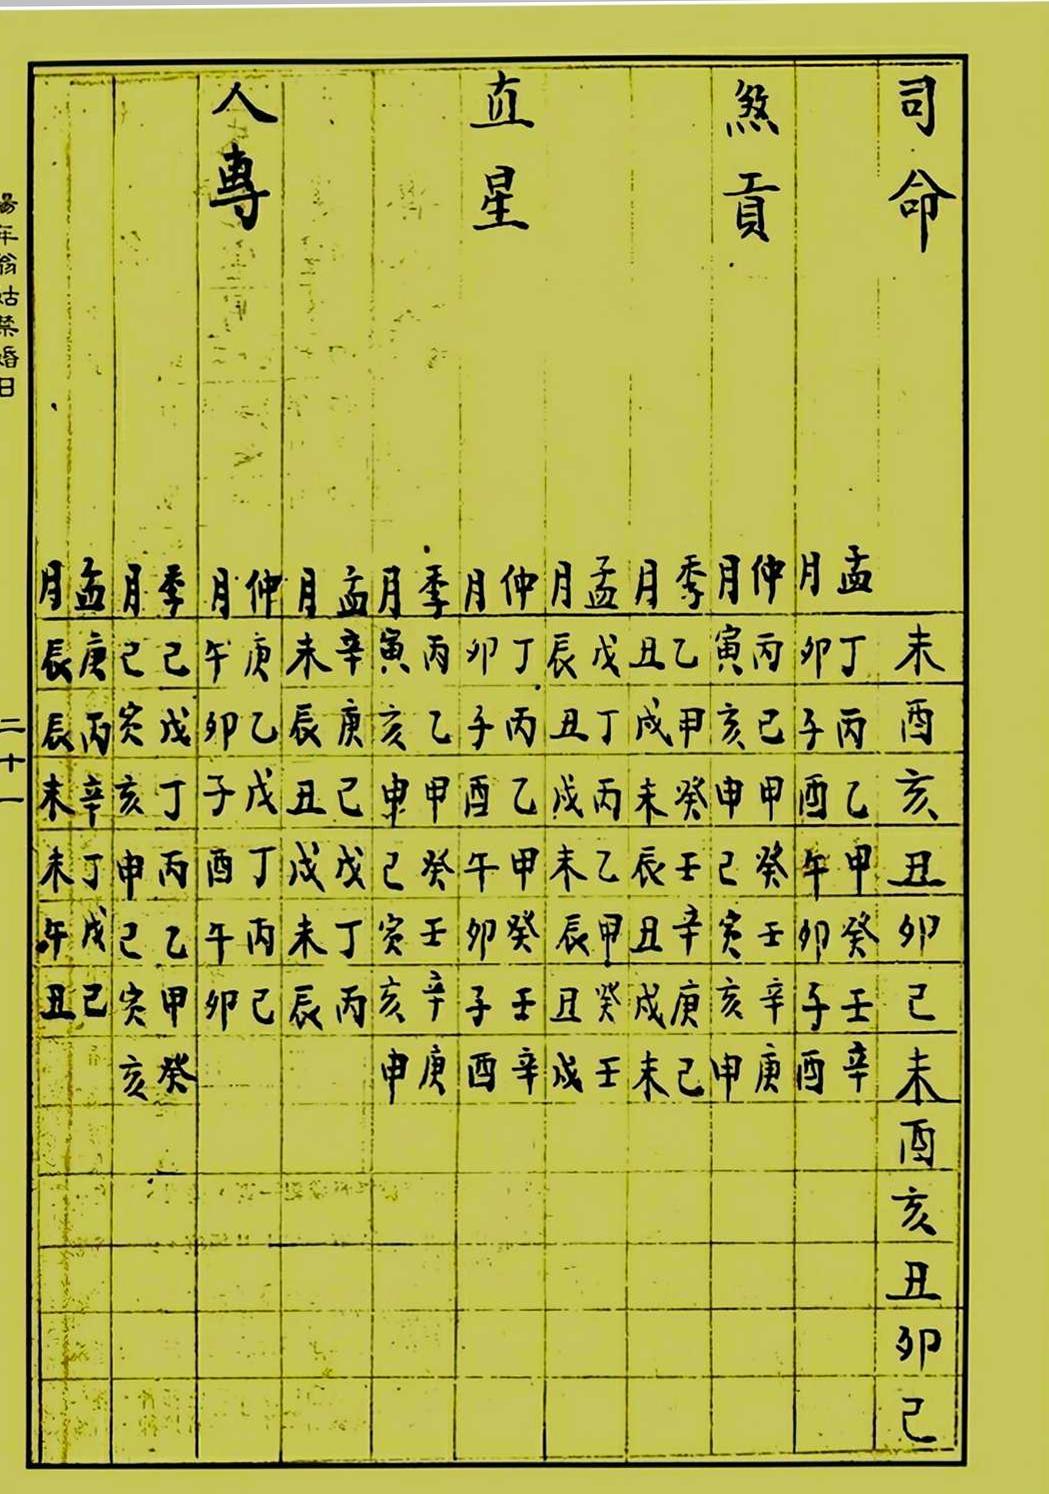 司命 未 酉 亥 丑 卯 己 未 酉 亥 丑 卯 己
孟月 丁卯 丙子 乙酉 甲午 癸卯 壬子 辛酉
煞貢 仲月 丙寅 己亥 甲申 癸己 壬寅 辛亥 庚申
季月 乙丑 甲戌 癸未 壬辰 辛丑 庚戌 己未
孟月 戊辰 丁丑 丙戌 乙未 甲辰 癸丑 壬戌
直星 仲月 丁卯 丙子 乙酉 甲午 癸卯 壬子 辛酉
季月 丙寅 乙亥 甲申 癸己 壬寅 辛亥 庚申
孟月 辛未 庚辰 己丑 戊戌 丁未 丙辰
人專 仲月 庚午 乙卯 戊子 丁酉 丙午 己卯
季月 己己 戊寅 丁亥 丙申 乙己 甲寅 癸亥
孟月 庚辰 丙辰 辛未 丁未 戊午 己丑
年翁姑禁婚日
二十一